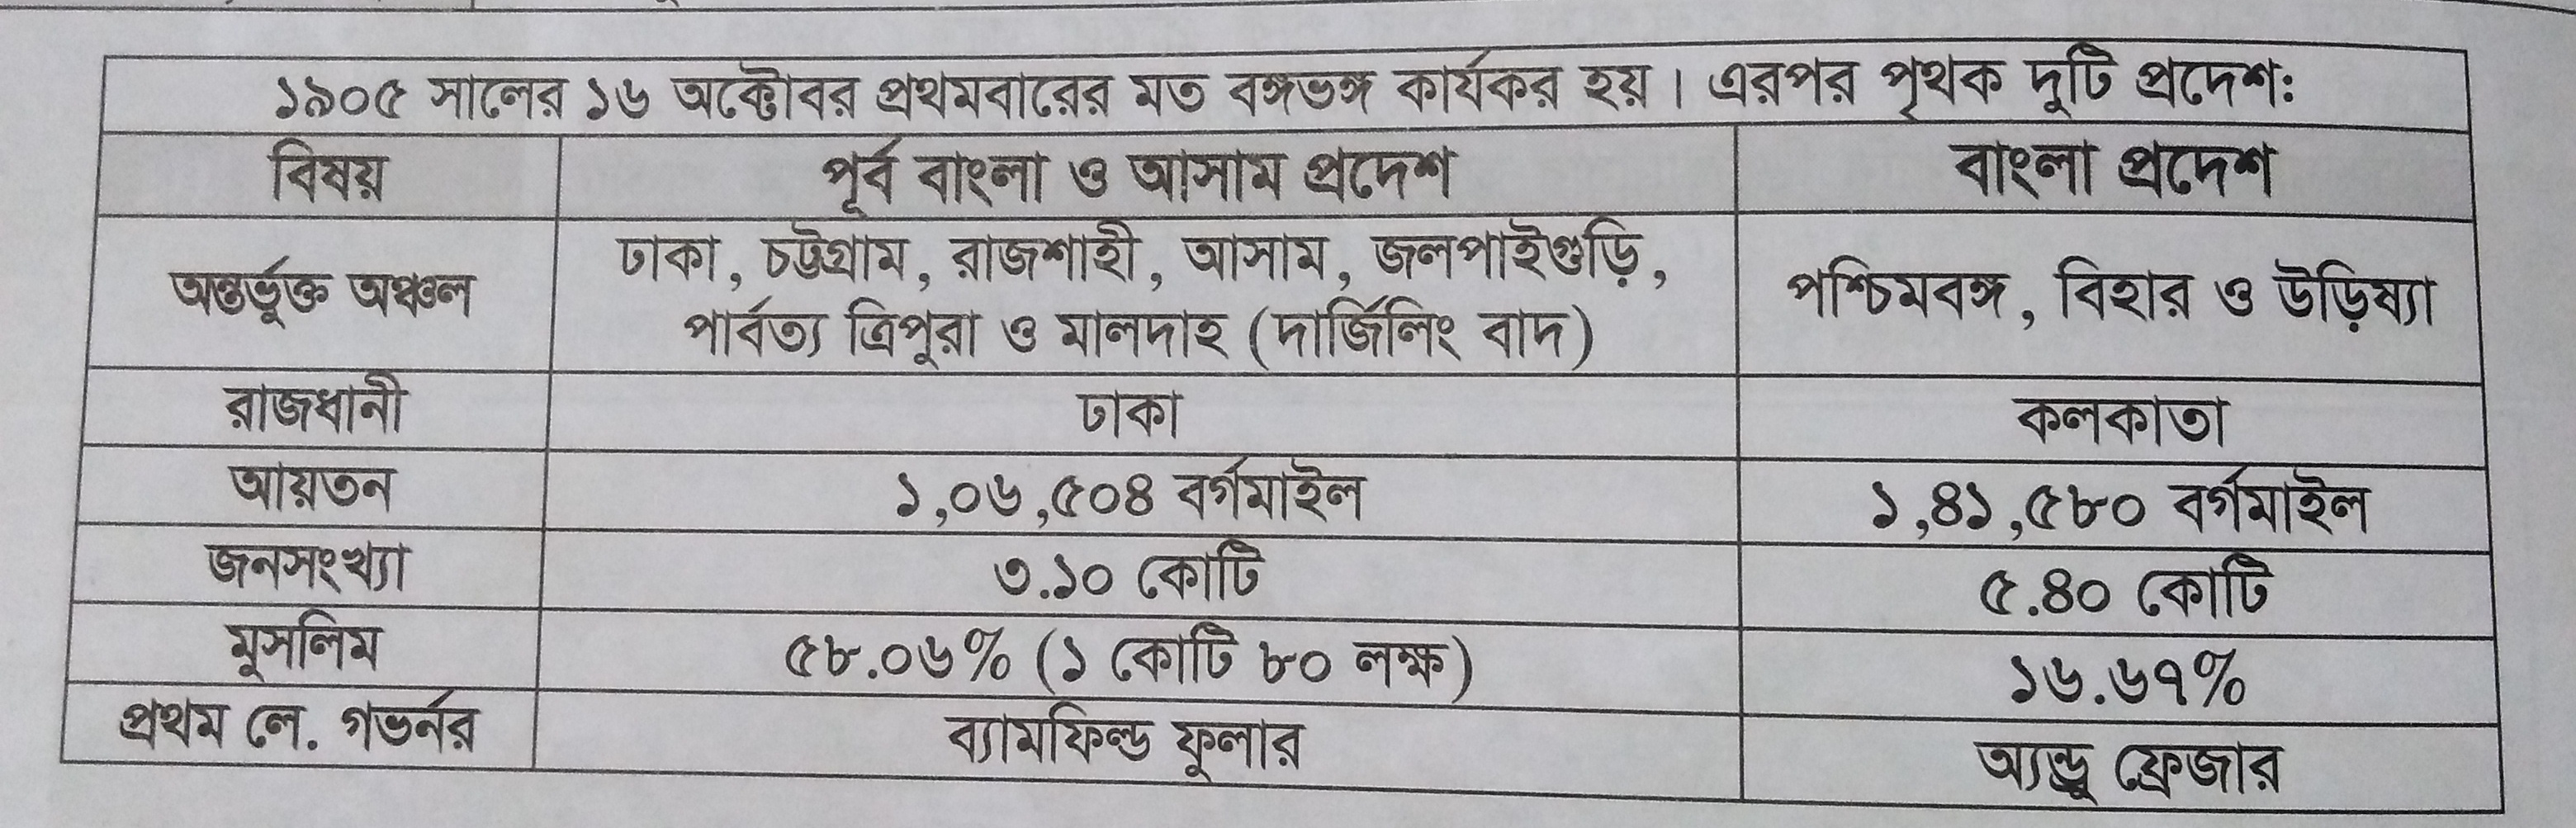 ১৯০৫ সালের ১৬ অক্টোবর প্রথমবারের মত বঙ্গভঙ্গ কার্যকর হয়। এরপর পৃথক দুটি প্রদেশ:
বিষয় পূর্ব বাংলা ও আসাম প্রদেশ বাংলা প্রদেশ
অন্তর্ভুক্ত অঞ্চল ঢাকা, চট্টগ্রাম, রাজশাহী, আসাম, জলপাইগুড়ি,
পার্বত্য ত্রিপুরা ও মালদাহ (দার্জিলিং বাদ) পশ্চিমবঙ্গ, বিহার ও উড়িষ্যা
রাজধানী ঢাকা কলকাতা
আয়তন ১,০৬,৫০৪ বর্গমাইল ১,৪১,৫৮০ বর্গমাইল
জনসংখ্যা ৩.১০ কোটি ৫.৪০ কোটি
মুসলিম ৫৮.০৬% (১ কোটি ৮০ লক্ষ) ১৬.৬৭%
প্রথম লে. গভর্নর ব্যামফিল্ড ফুলার অ্যান্ড্রু ফ্রেজার